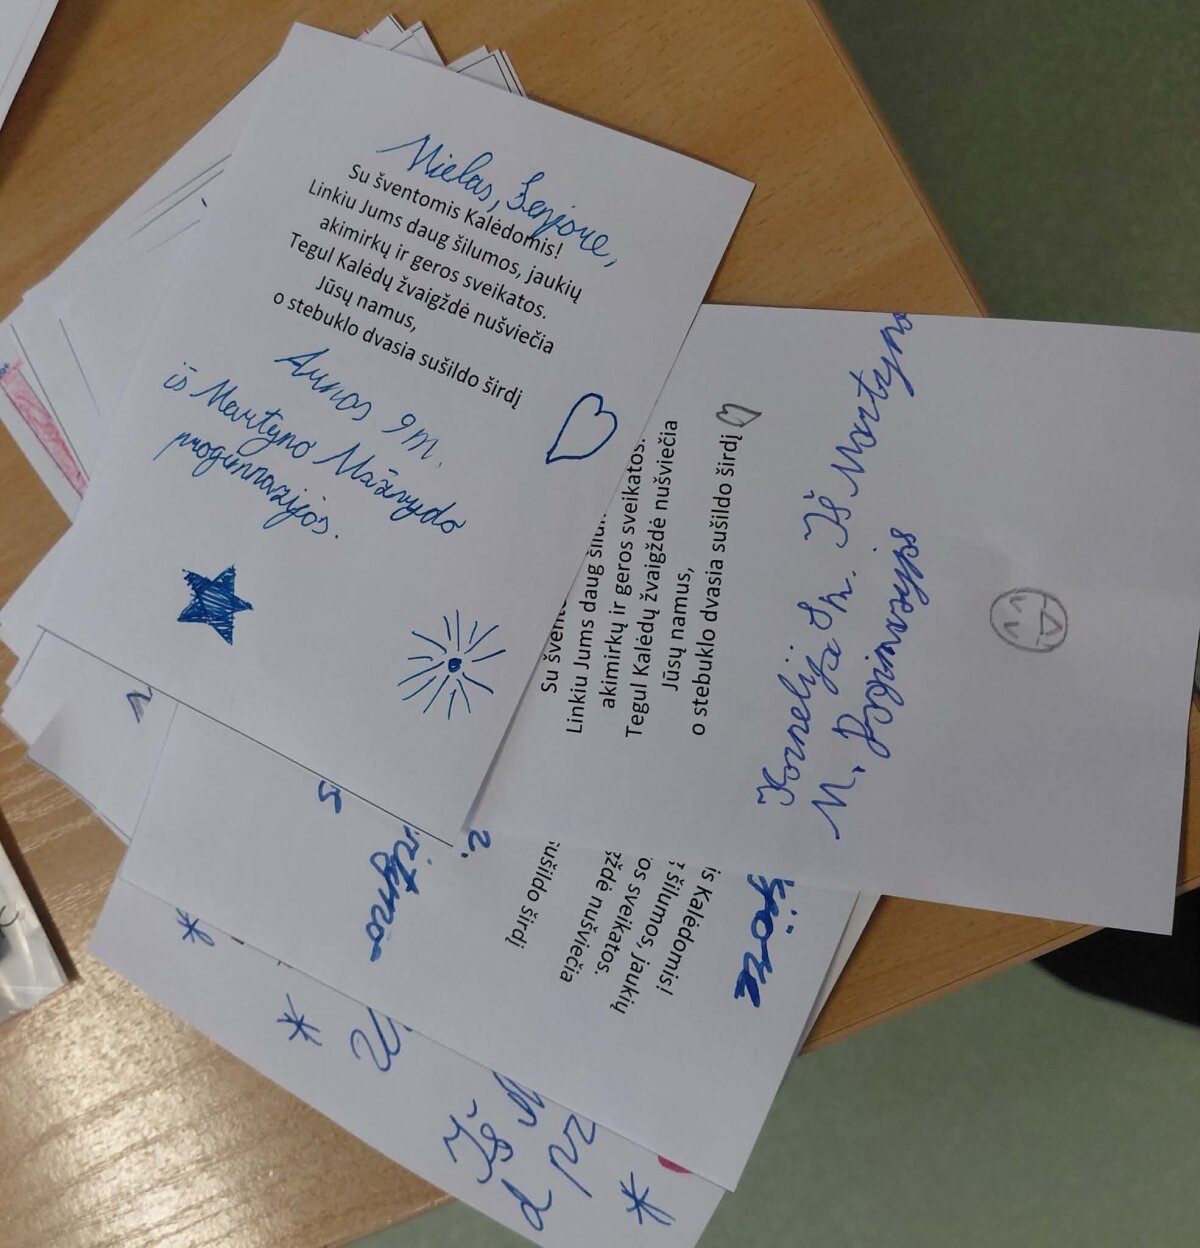 Mielas, Senjore,
Su šventomis Kalėdomis!
Linkiu Jums daug šilumos, jaukių
akimirkų ir geros sveikatos.
Tegul Kalėdų žvaigždė nušviečia
Jūsų namus,
o stebuklo dvasia sušildo širdį
9m.
iš Martyno Mažvydo
progimnazijos.
Su švent
Linkiu Jums daug šilu
akimirkų ir geros sveikatos.
Tegul Kalėdų žvaigždė nušviečia
Jūsų namus,
o stebuklo dvasia sušildo širdį
Kornelija Iš Martyno
M.
jore
is Kalėdomis!
šilumos, jaukių
os sveikatos.
ždė nušviečia
sušildo širdį
Iš